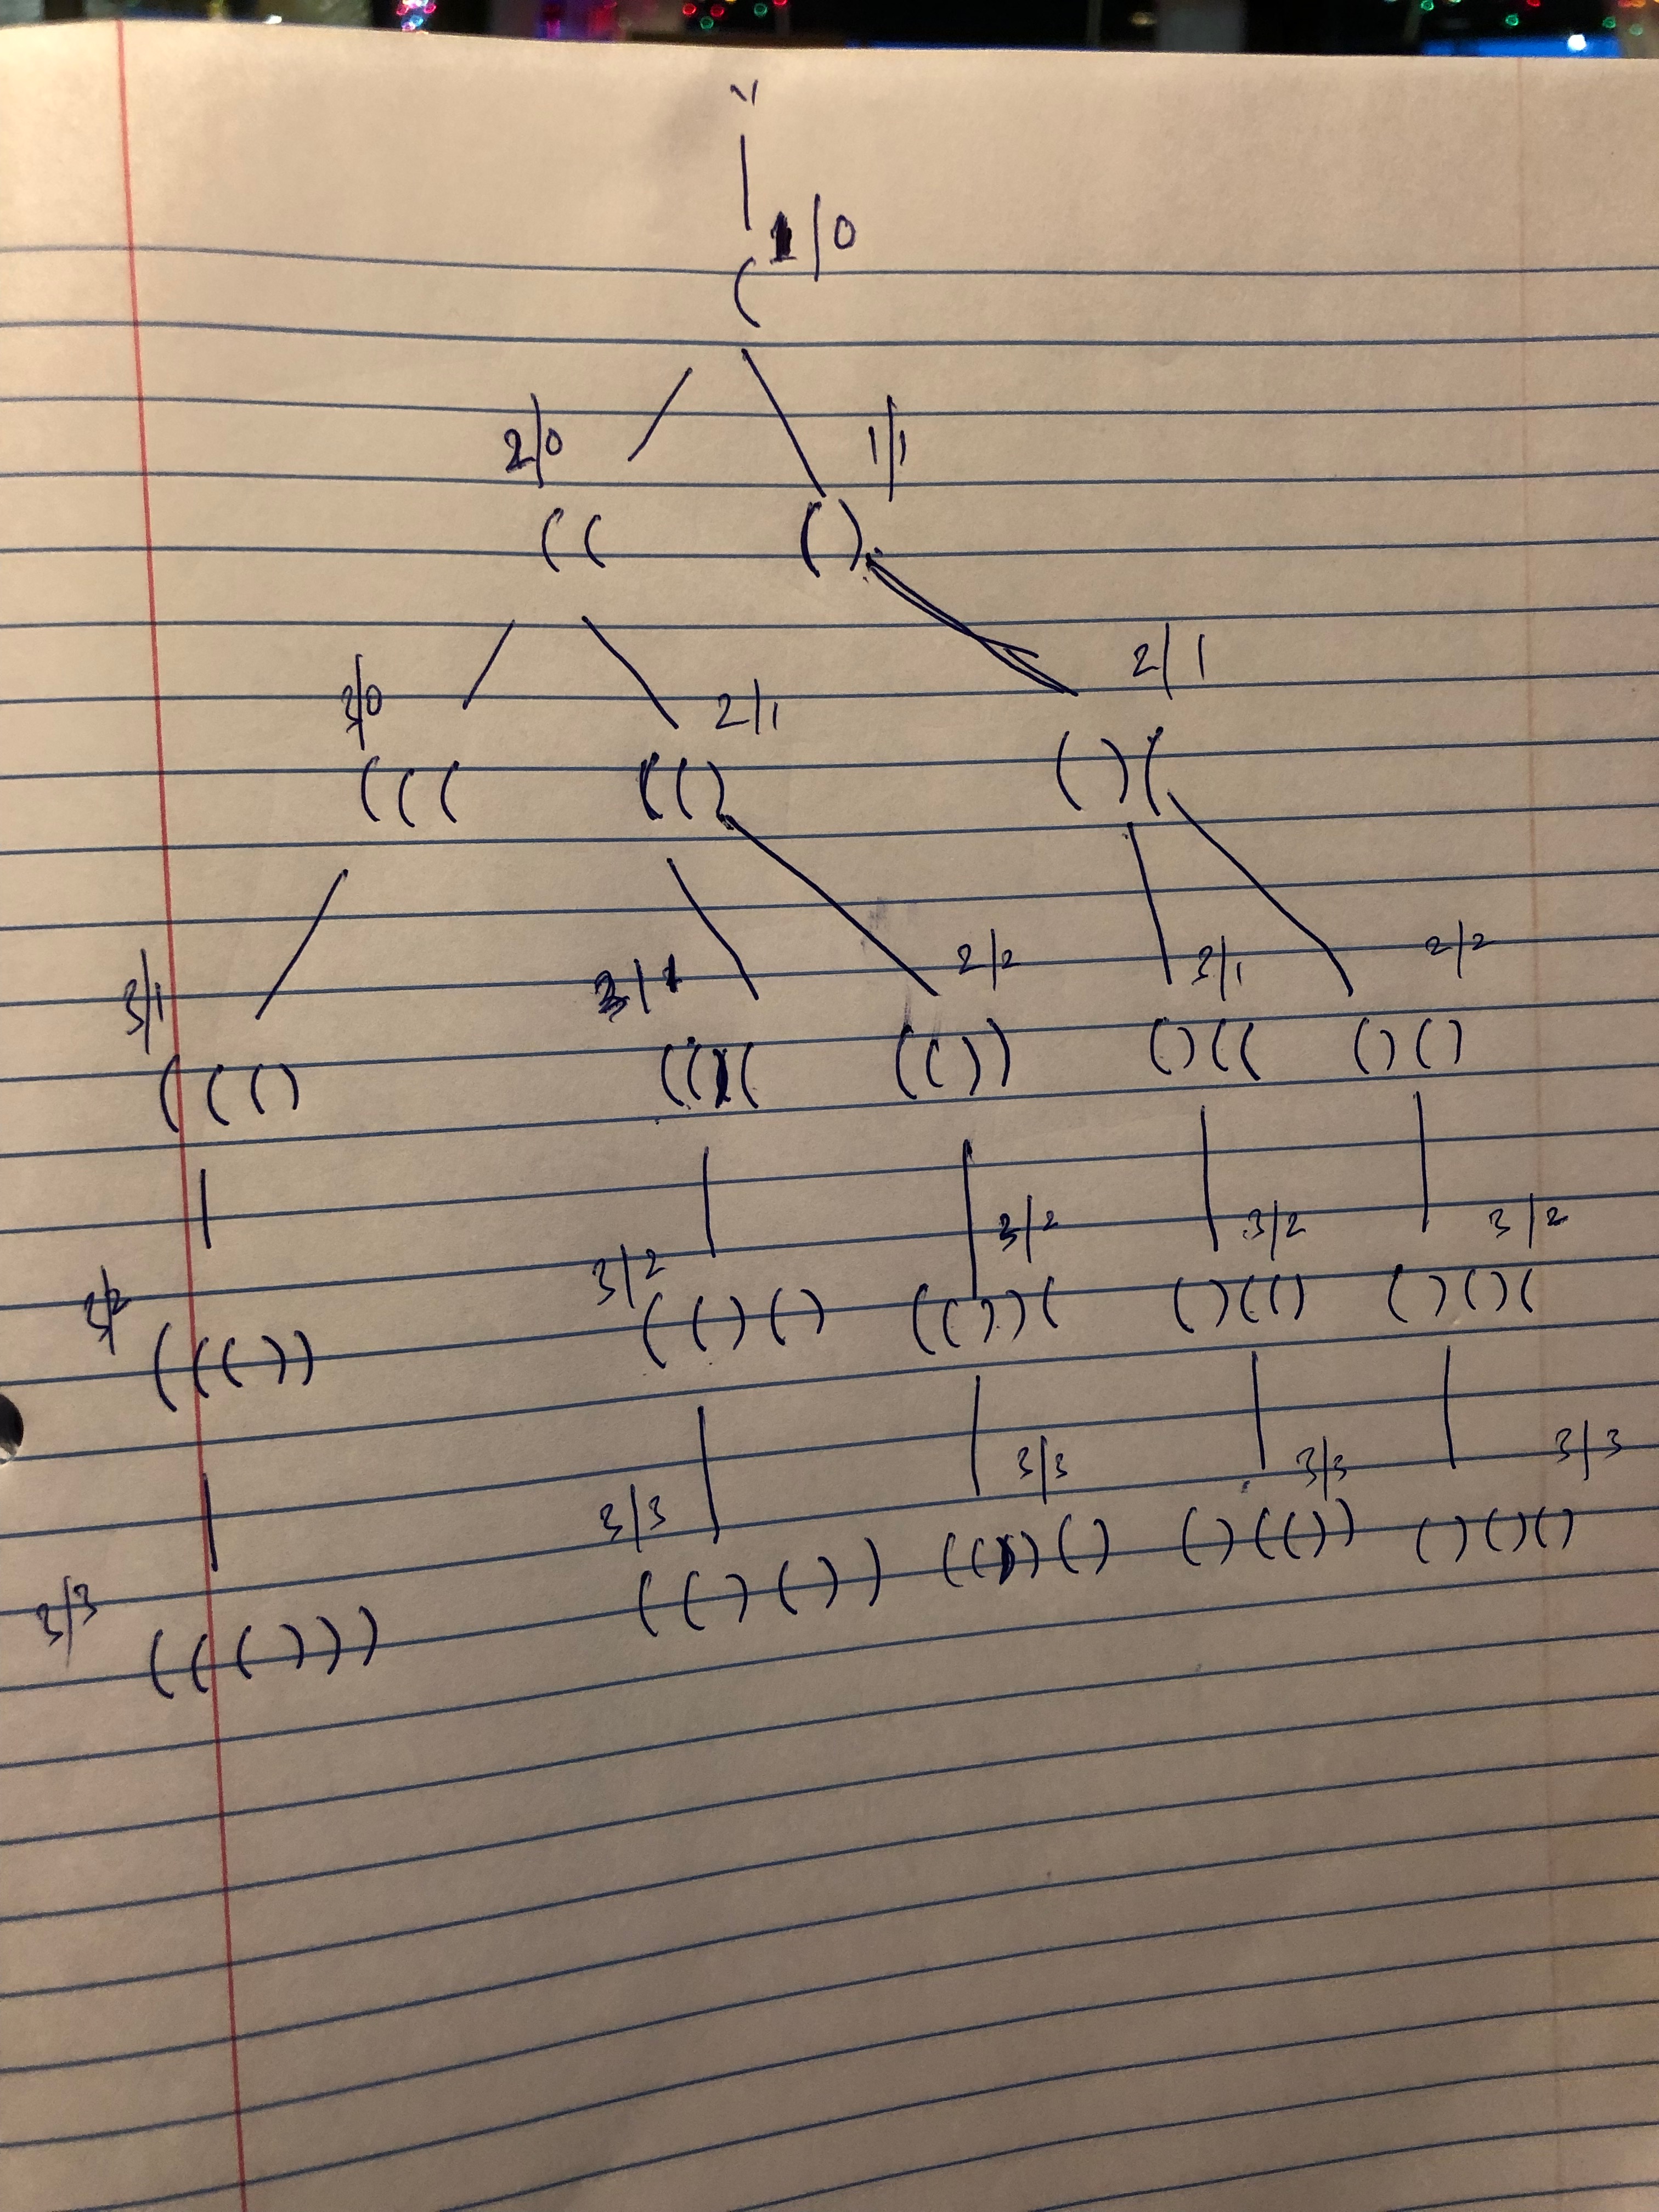 "
1/0
(
2/0 1/1
(( ()
2/1
3/0 2/1
((( (() ()(
3/1 3/1 2/2 3/1 2/2
((() (()( (()) ()(( ()()
3/2 3/2 3/2 3/2 3/2
((()) (()() (())( ()(() ()()(
3/3 3/3 3/3 3/3 3/3
((())) (()()) (())() ()(()) ()()()